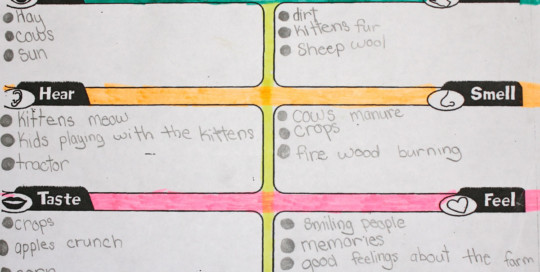 Hay
cows
sun
dirt
kittens fur
sheep wool
Hear
kittens meow
kids playing with the kittens
tractor
Smell
cows manure
crops
fire wood burning
Taste
crops
apples crunch
Feel
smiling people
memories
good feelings about the farm